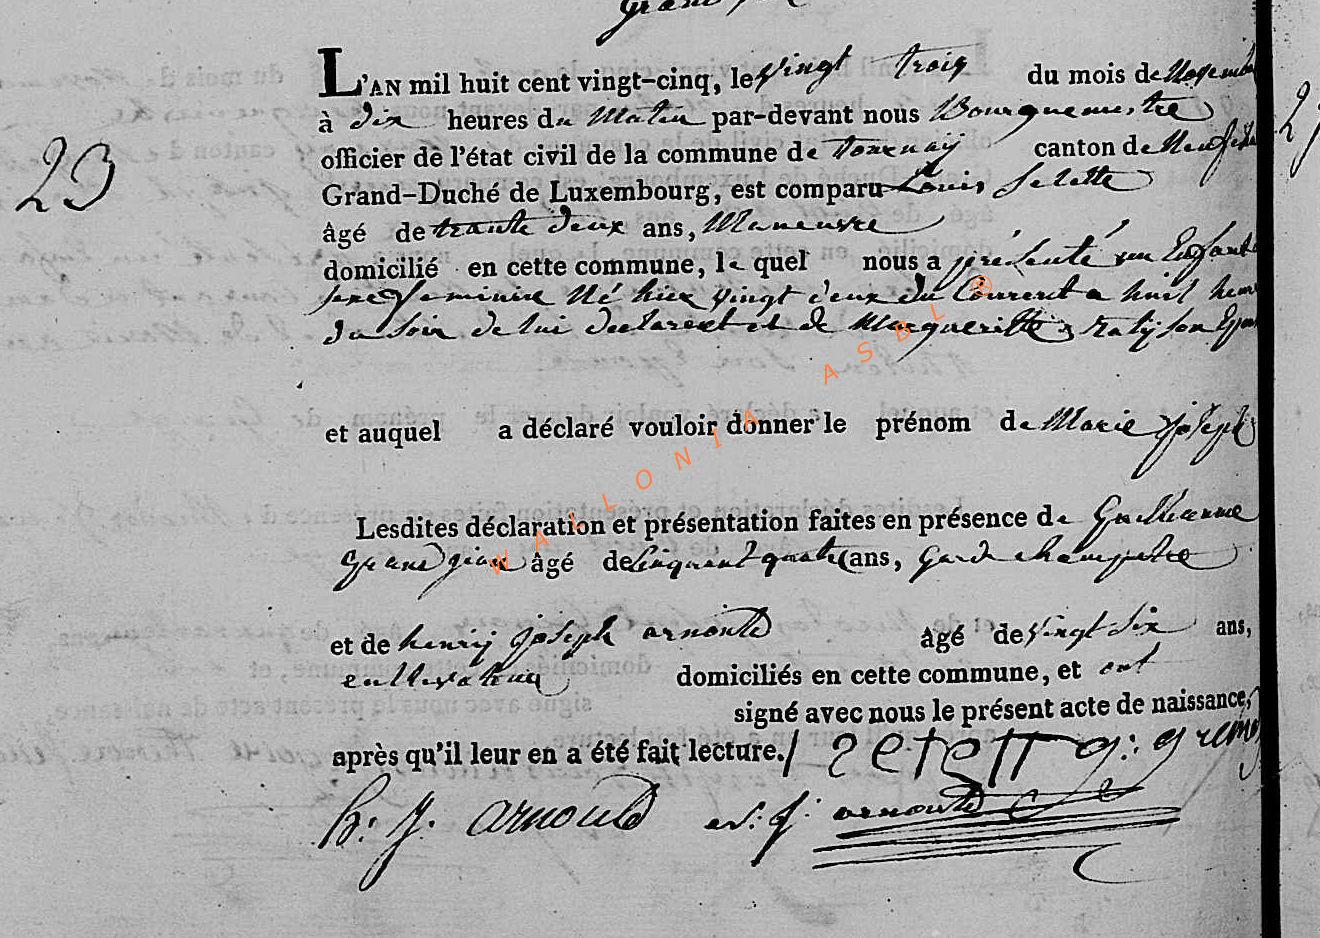 23
L'AN mil huit cent vingt-cinq, le vingt trois du mois de Novembre
à dix heures du Matin par-devant nous Bourguemestre
officier de l'état civil de la commune de tournay canton de Neufchâteau
Grand-Duché de Luxembourg, est comparu Louis Zelette
âgé de trante deux ans, Maneuvre
domicilié en cette commune, le quel nous a présenté un Enfant
sexe feminin Né hier vingt deux du Courent a huit heure
du soir de lui declarent et de Margueritte son Epouse
et auquel a déclaré vouloir donner le prénom de Marie joseph
Lesdites déclaration et présentation faites en présence de Guillieaume
Grandjean âgé de Cinquent quatre ans, gardechampetre
et de henrij joseph arnould âgé de vingt six ans,
cultivateur domiciliés en cette commune, et ont
signé avec nous le présent acte de naissance,
après qu'il leur en a été fait lecture./ zelett g: grand
h: j. arnould j. arnould
WALLONIA ASBL ®